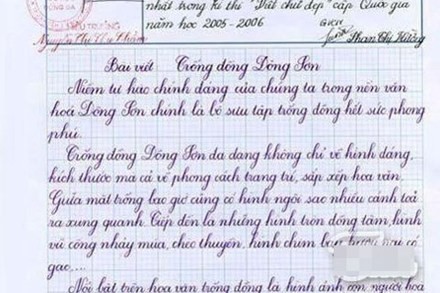 nhất trong kì thi "Viết chữ đẹp" cấp Quốc gia
năm học 2005 - 2006
GVCN
Phan Thị Hường
Bài viết Trống đồng Đông Sơn
Niềm tự hào chính đáng của chúng ta trong nền văn
hoá Đông Sơn chính là bộ sưu tập trống đồng hết sức phong
phú.
Trống đồng Đông Sơn đa dạng không chỉ về hình dáng,
kích thước mà cả về phong cách trang trí, sắp xếp hoa văn.
Giữa mặt trống lạc giờ cũng có hình ngôi sao nhiều cánh toả
ra xung quanh. Tiếp đến là những hình tròn đồng tâm, hình
vũ công nhảy múa, chèo thuyền, hình chim bay, hươu nai có
gạc,...
Nổi bật trên hoa văn trống đồng là hình ảnh con người hoà